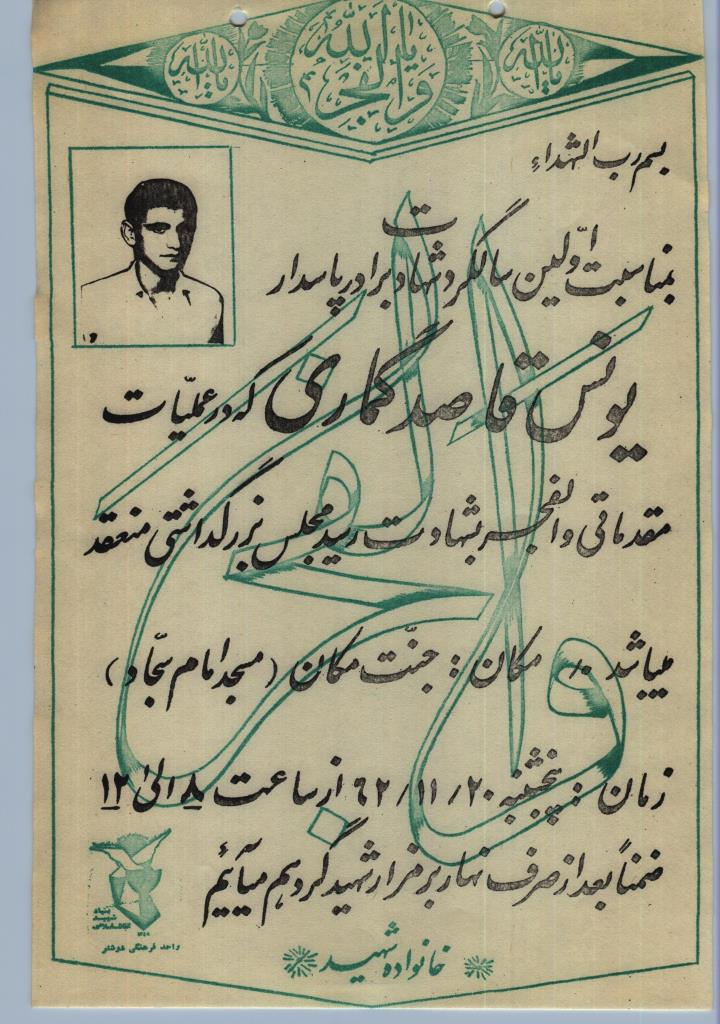 یالله
والفجر
یا الله
یا الله
بسم رب الشهداء
بمناسبت اوّلین سالگرد شهادت برادر پاسدار
یونس قاصد گماری که در عملیّات
مقدماتی والفجر بشهادت رسید مجلس بزرگداشتی منعقد
میباشد مکان : جنّت مکان (مسجد امام سجّاد)
زمان : پنجشنبه ۶۲/۱۱/۲۰ از ساعت ۸ الیٰ ۱۲
ضمناً بعد از صرف نهار بر مزار شهید گرد هم میآئیم
والفجر
بنیاد
شهید
انقلاب اسلامی
واحد فرهنگی شوشتر
خانواده شهید